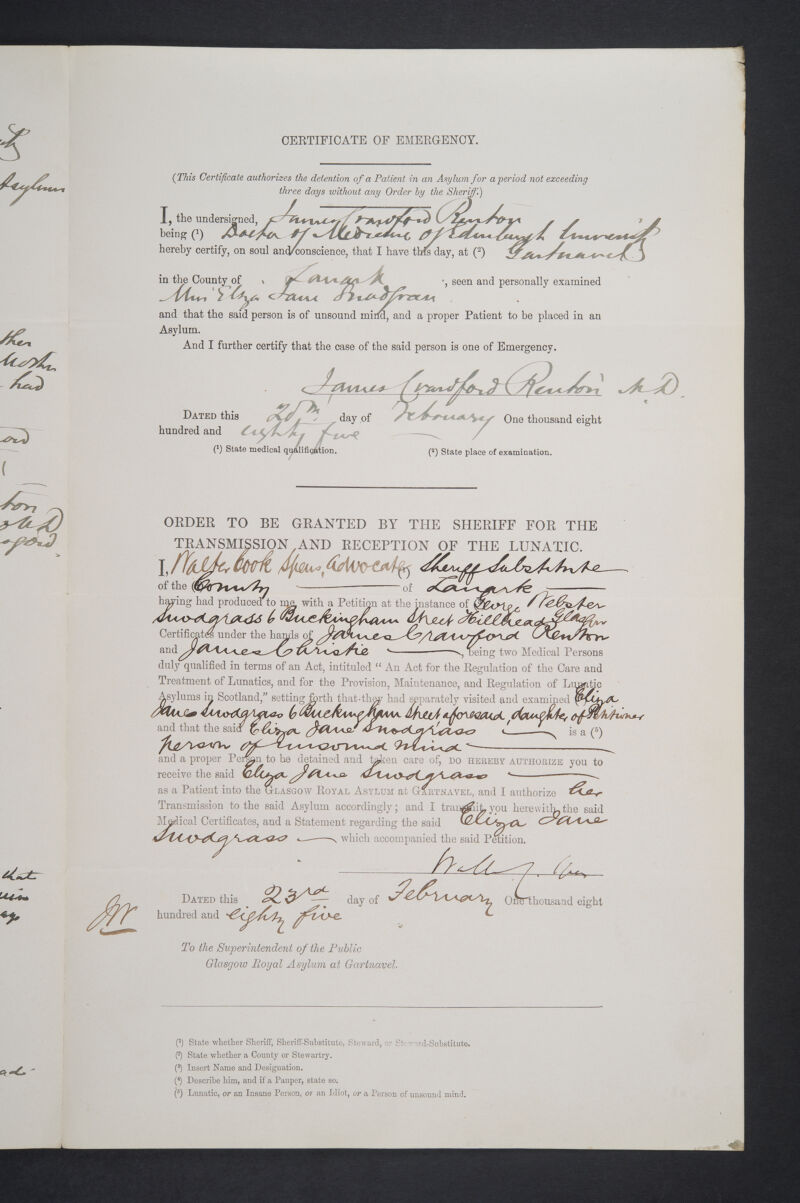 CERTIFICATE OF EMERGENCY.
(This Certificate authorizes the detention of a Patient in an Asylum for a period not exceeding
three days without any Order by the Sheriff.)
I, the undersigned, James Crawford Renton
being (¹) Doctor of Medicine of Edinburgh University
hereby certify, on soul and conscience, that I have this day, at (²) Gartnavel
in the County of Lanark, seen and personally examined
Miss Eliza Jane Snodgrass
and that the said person is of unsound mind, and a proper Patient to be placed in an
Asylum.
And I further certify that the case of the said person is one of Emergency.
James Crawford Renton M.D.
DATED this 20th day of February One thousand eight
hundred and eighty five
(¹) State medical qualification. (²) State place of examination.
ORDER TO BE GRANTED BY THE SHERIFF FOR THE
TRANSMISSION AND RECEPTION OF THE LUNATIC.
I, Walter Cook Spens, Advocate, Sheriff Substitute
of the County of Lanark
having had produced to me, with a Petition at the instance of George Webster
Snodgrass 6 Buckingham Street Hillhead Glasgow
Certificates under the hands of James Crawford Renton
and James Christie, being two Medical Persons
duly qualified in terms of an Act, intituled "An Act for the Regulation of the Care and
Treatment of Lunatics, and for the Provision, Maintenance, and Regulation of Lunatic
Asylums in Scotland," setting forth that they had separately visited and examined Eliza
Jane Snodgrass 6 Buckingham Street aforesaid, daughter of Petitioner
and that the said Eliza Jane Snodgrass is a (⁵)
person of unsound mind
and a proper Person to be detained and taken care of, DO HEREBY AUTHORIZE you to
receive the said Eliza Jane Snodgrass
as a Patient into the GLASGOW ROYAL ASYLUM at GARTNAVEL, and I authorize her
Transmission to the said Asylum accordingly; and I transmit you herewith the said
Medical Certificates, and a Statement regarding the said Eliza Jane
Snodgrass which accompanied the said Petition.
DATED this 23rd day of February One thousand eight
hundred and eighty five
To the Superintendent of the Public
Glasgow Royal Asylum at Gartnavel.
(¹) State whether Sheriff, Sheriff-Substitute, Steward, or Steward-Substitute.
(²) State whether a County or Stewartry.
(³) Insert Name and Designation.
(⁴) Describe him, and if a Pauper, state so.
(⁵) Lunatic, or an Insane Person, or an Idiot, or a Person of unsound mind.